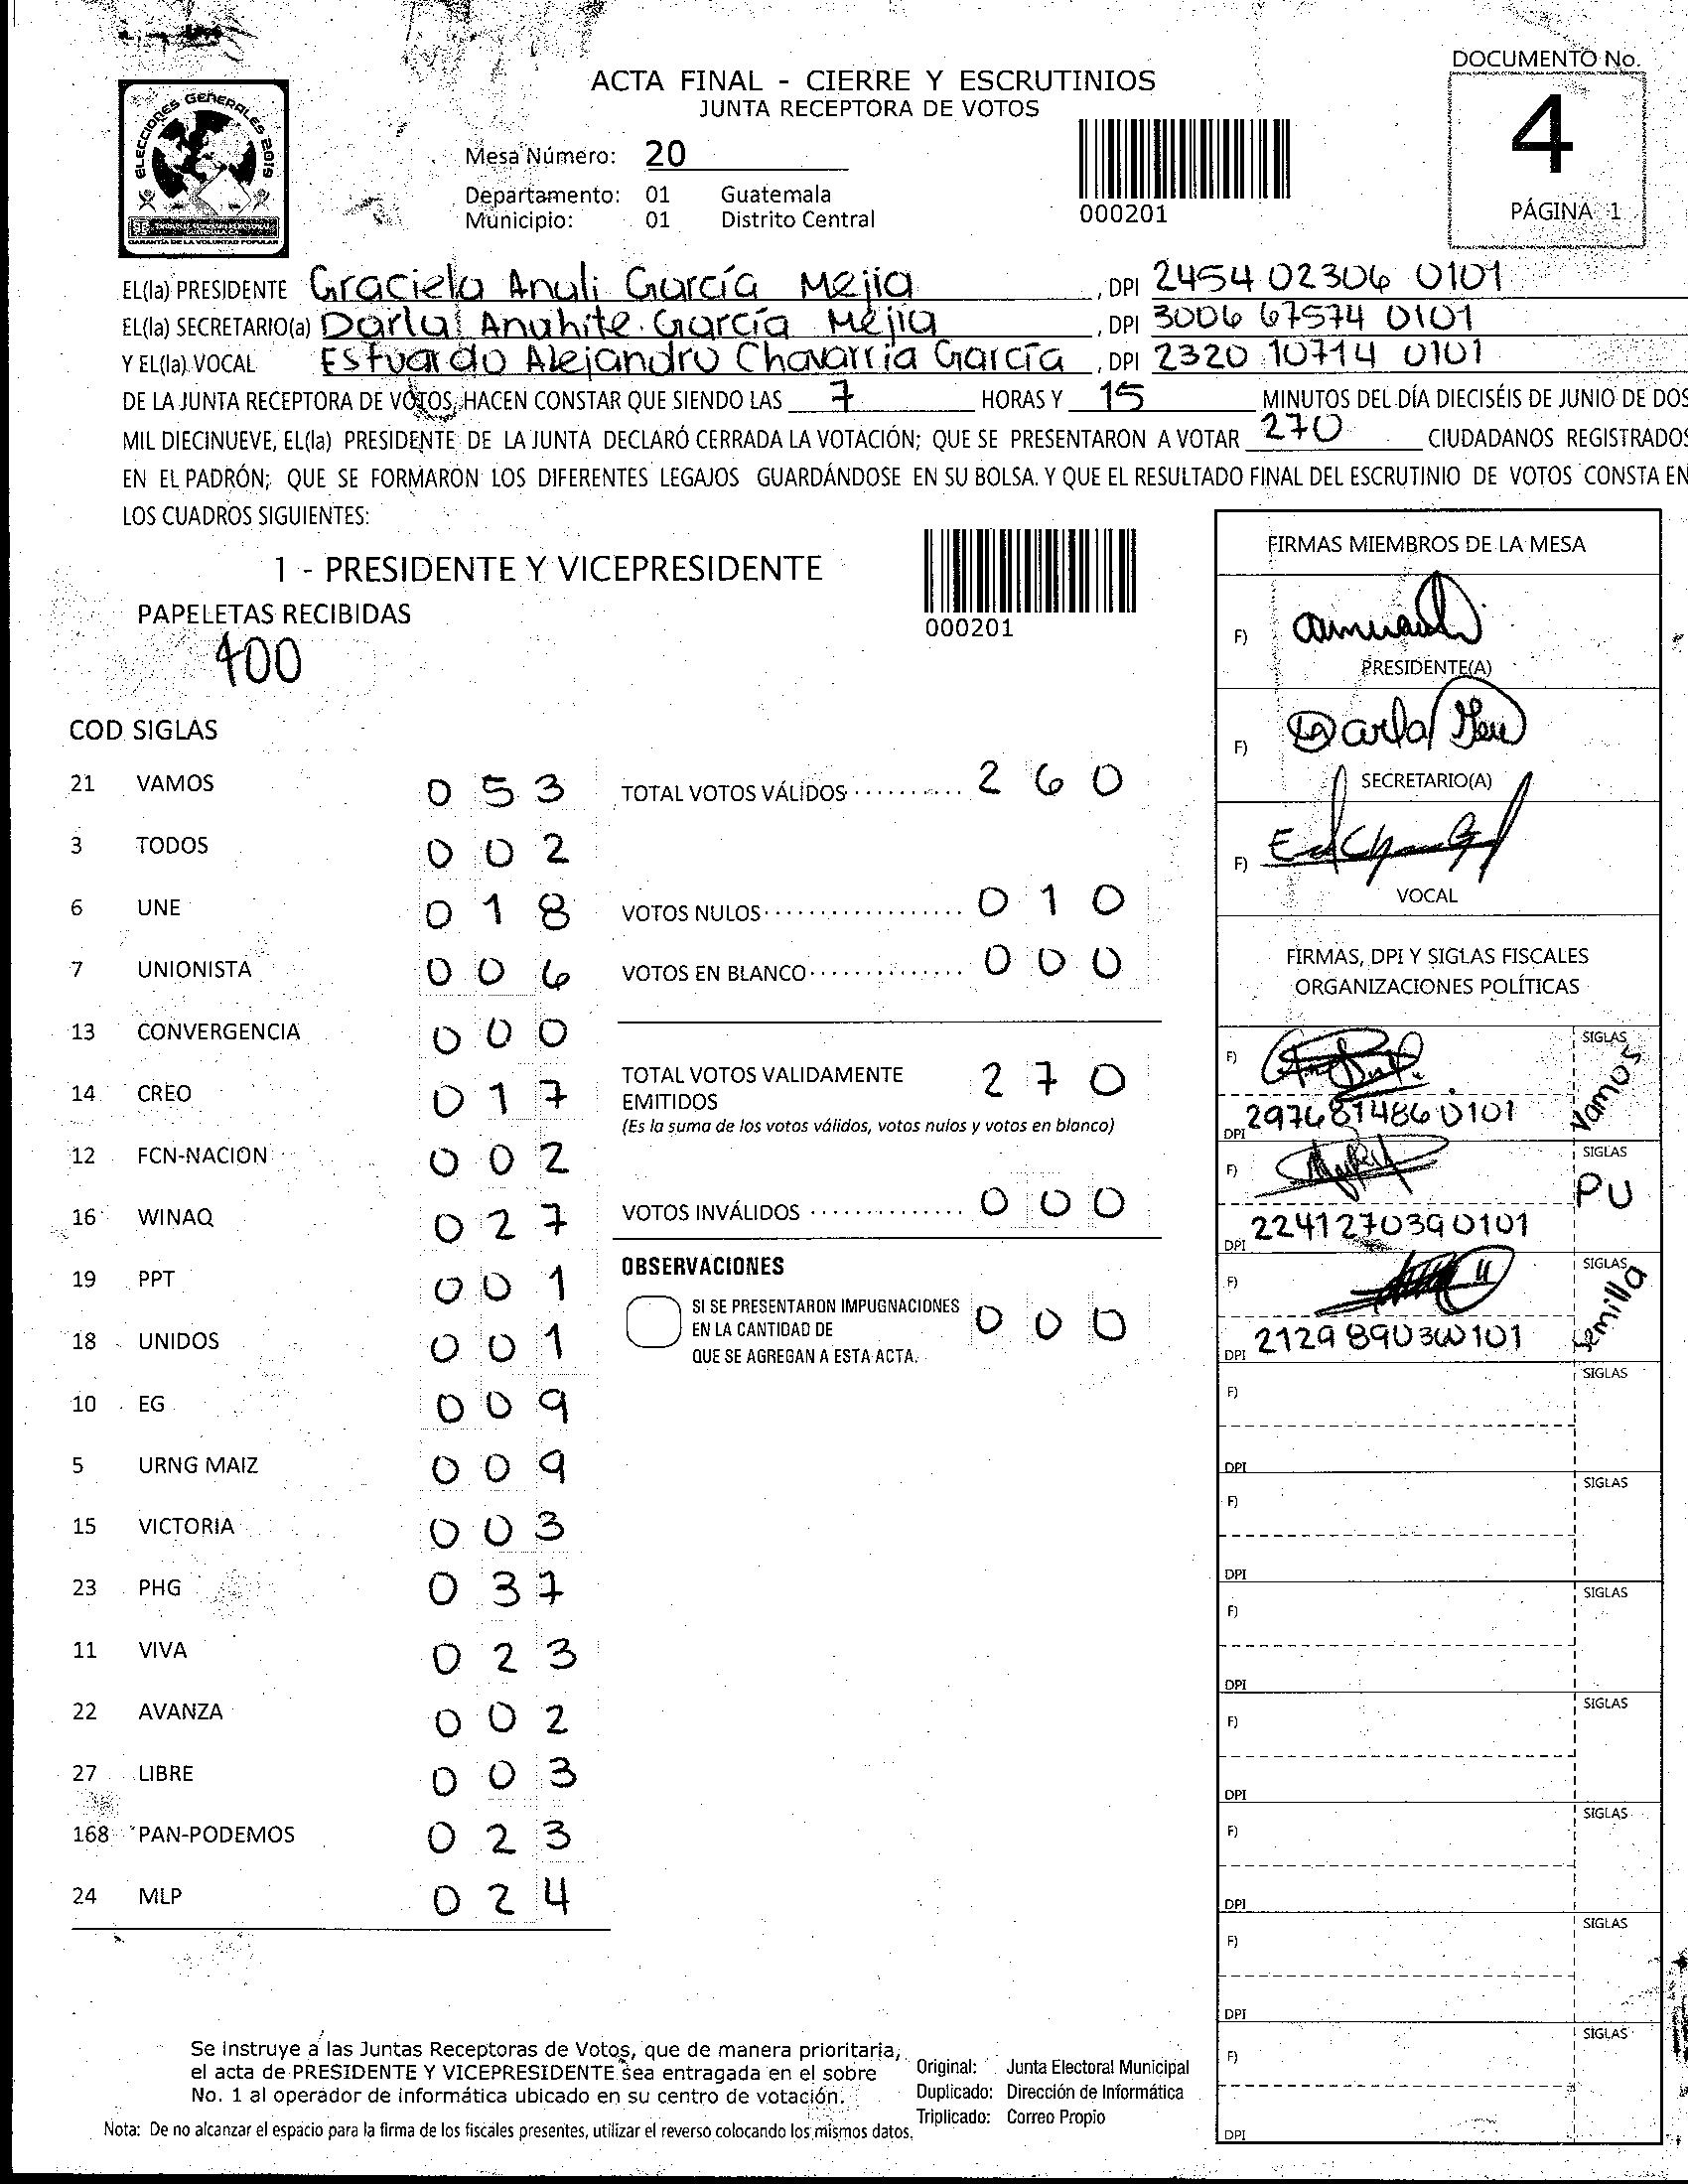 DOCUMENTO No.
4
PÁGINA 1
ELECCIONES GENERALES 2019
GARANTÍA DE LA VOLUNTAD POPULAR
ACTA FINAL - CIERRE Y ESCRUTINIOS
JUNTA RECEPTORA DE VOTOS
Mesa Número: 20
Departamento: 01 Guatemala
Municipio: 01 Distrito Central
000201
EL(la) PRESIDENTE Graciela Anali García Mejia, DPI 2454 02306 0101
EL(la) SECRETARIO(a) Darla Anahite García Mejia, DPI 3006 67574 0101
Y EL(la) VOCAL Estuardo Alejandro Chavarría García, DPI 2320 10714 0101
DE LA JUNTA RECEPTORA DE VOTOS, HACEN CONSTAR QUE SIENDO LAS 7 HORAS Y 15 MINUTOS DEL DÍA DIECISÉIS DE JUNIO DE DOS
MIL DIECINUEVE, EL(la) PRESIDENTE DE LA JUNTA DECLARÓ CERRADA LA VOTACIÓN; QUE SE PRESENTARON A VOTAR 270 CIUDADANOS REGISTRADOS
EN EL PADRÓN; QUE SE FORMARON LOS DIFERENTES LEGAJOS GUARDÁNDOSE EN SU BOLSA. Y QUE EL RESULTADO FINAL DEL ESCRUTINIO DE VOTOS CONSTA EN
LOS CUADROS SIGUIENTES:
1 - PRESIDENTE Y VICEPRESIDENTE
000201
PAPELETAS RECIBIDAS
400
COD SIGLAS
21 VAMOS 0 5 3
3 TODOS 0 0 2
6 UNE 0 1 8
7 UNIONISTA 0 0 6
13 CONVERGENCIA 0 0 0
14 CREO 0 1 7
12 FCN-NACION 0 0 2
16 WINAQ 0 2 7
19 PPT 0 0 1
18 UNIDOS 0 0 1
10 EG 0 0 9
5 URNG MAIZ 0 0 9
15 VICTORIA 0 0 3
23 PHG 0 3 7
11 VIVA 0 2 3
22 AVANZA 0 0 2
27 LIBRE 0 0 3
168 PAN-PODEMOS 0 2 3
24 MLP 0 2 4
TOTAL VOTOS VÁLIDOS .......... 2 6 0
VOTOS NULOS .................. 0 1 0
VOTOS EN BLANCO .............. 0 0 0
TOTAL VOTOS VALIDAMENTE
EMITIDOS 2 7 0
(Es la suma de los votos válidos, votos nulos y votos en blanco)
VOTOS INVÁLIDOS .............. 0 0 0
OBSERVACIONES
SI SE PRESENTARON IMPUGNACIONES
EN LA CANTIDAD DE 0 0 0
QUE SE AGREGAN A ESTA ACTA.
FIRMAS MIEMBROS DE LA MESA
F)
PRESIDENTE(A)
F) Darla
SECRETARIO(A)
F)
VOCAL
FIRMAS, DPI Y SIGLAS FISCALES
ORGANIZACIONES POLÍTICAS
F) SIGLAS Vamos
DPI 2976814860101
F) SIGLAS PU
DPI 2241270390101
F) SIGLAS Semilla
DPI 2129890360101
F) SIGLAS
DPI
F) SIGLAS
DPI
F) SIGLAS
DPI
F) SIGLAS
DPI
F) SIGLAS
DPI
F) SIGLAS
DPI
F) SIGLAS
DPI
Se instruye a las Juntas Receptoras de Votos, que de manera prioritaria,
el acta de PRESIDENTE Y VICEPRESIDENTE sea entragada en el sobre
No. 1 al operador de informática ubicado en su centro de votación.
Original: Junta Electoral Municipal
Duplicado: Dirección de Informática
Triplicado: Correo Propio
Nota: De no alcanzar el espacio para la firma de los fiscales presentes, utilizar el reverso colocando los mismos datos.